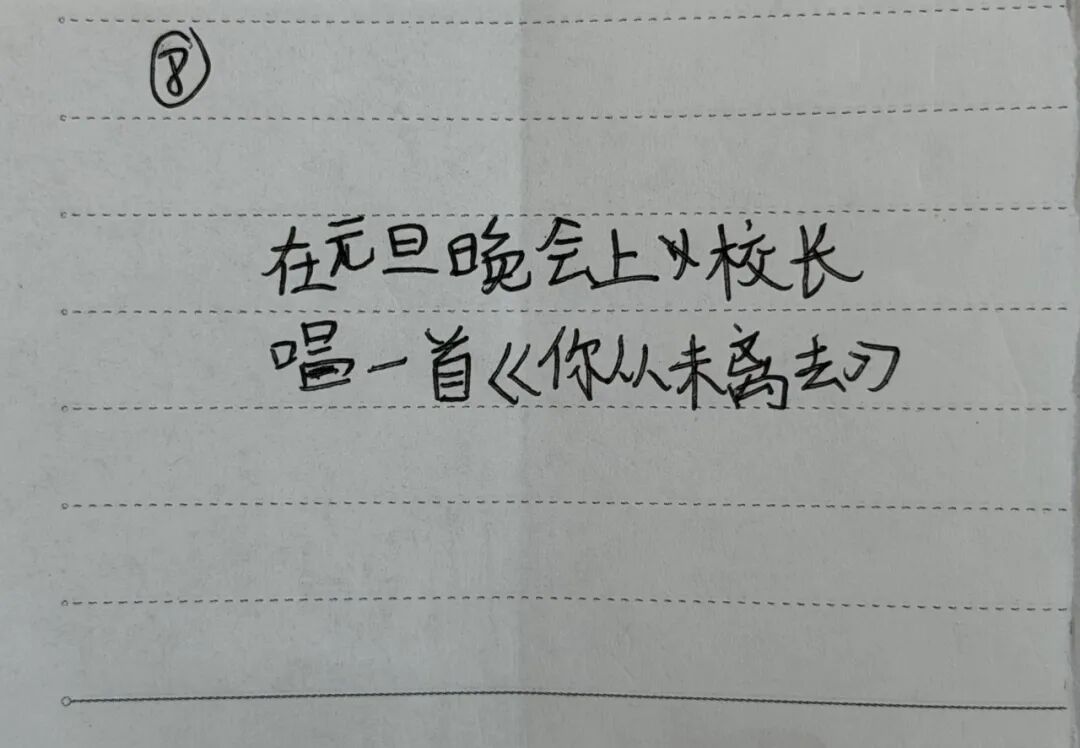 ⑧
在元旦晚会上校长
唱一首《你从未离去》